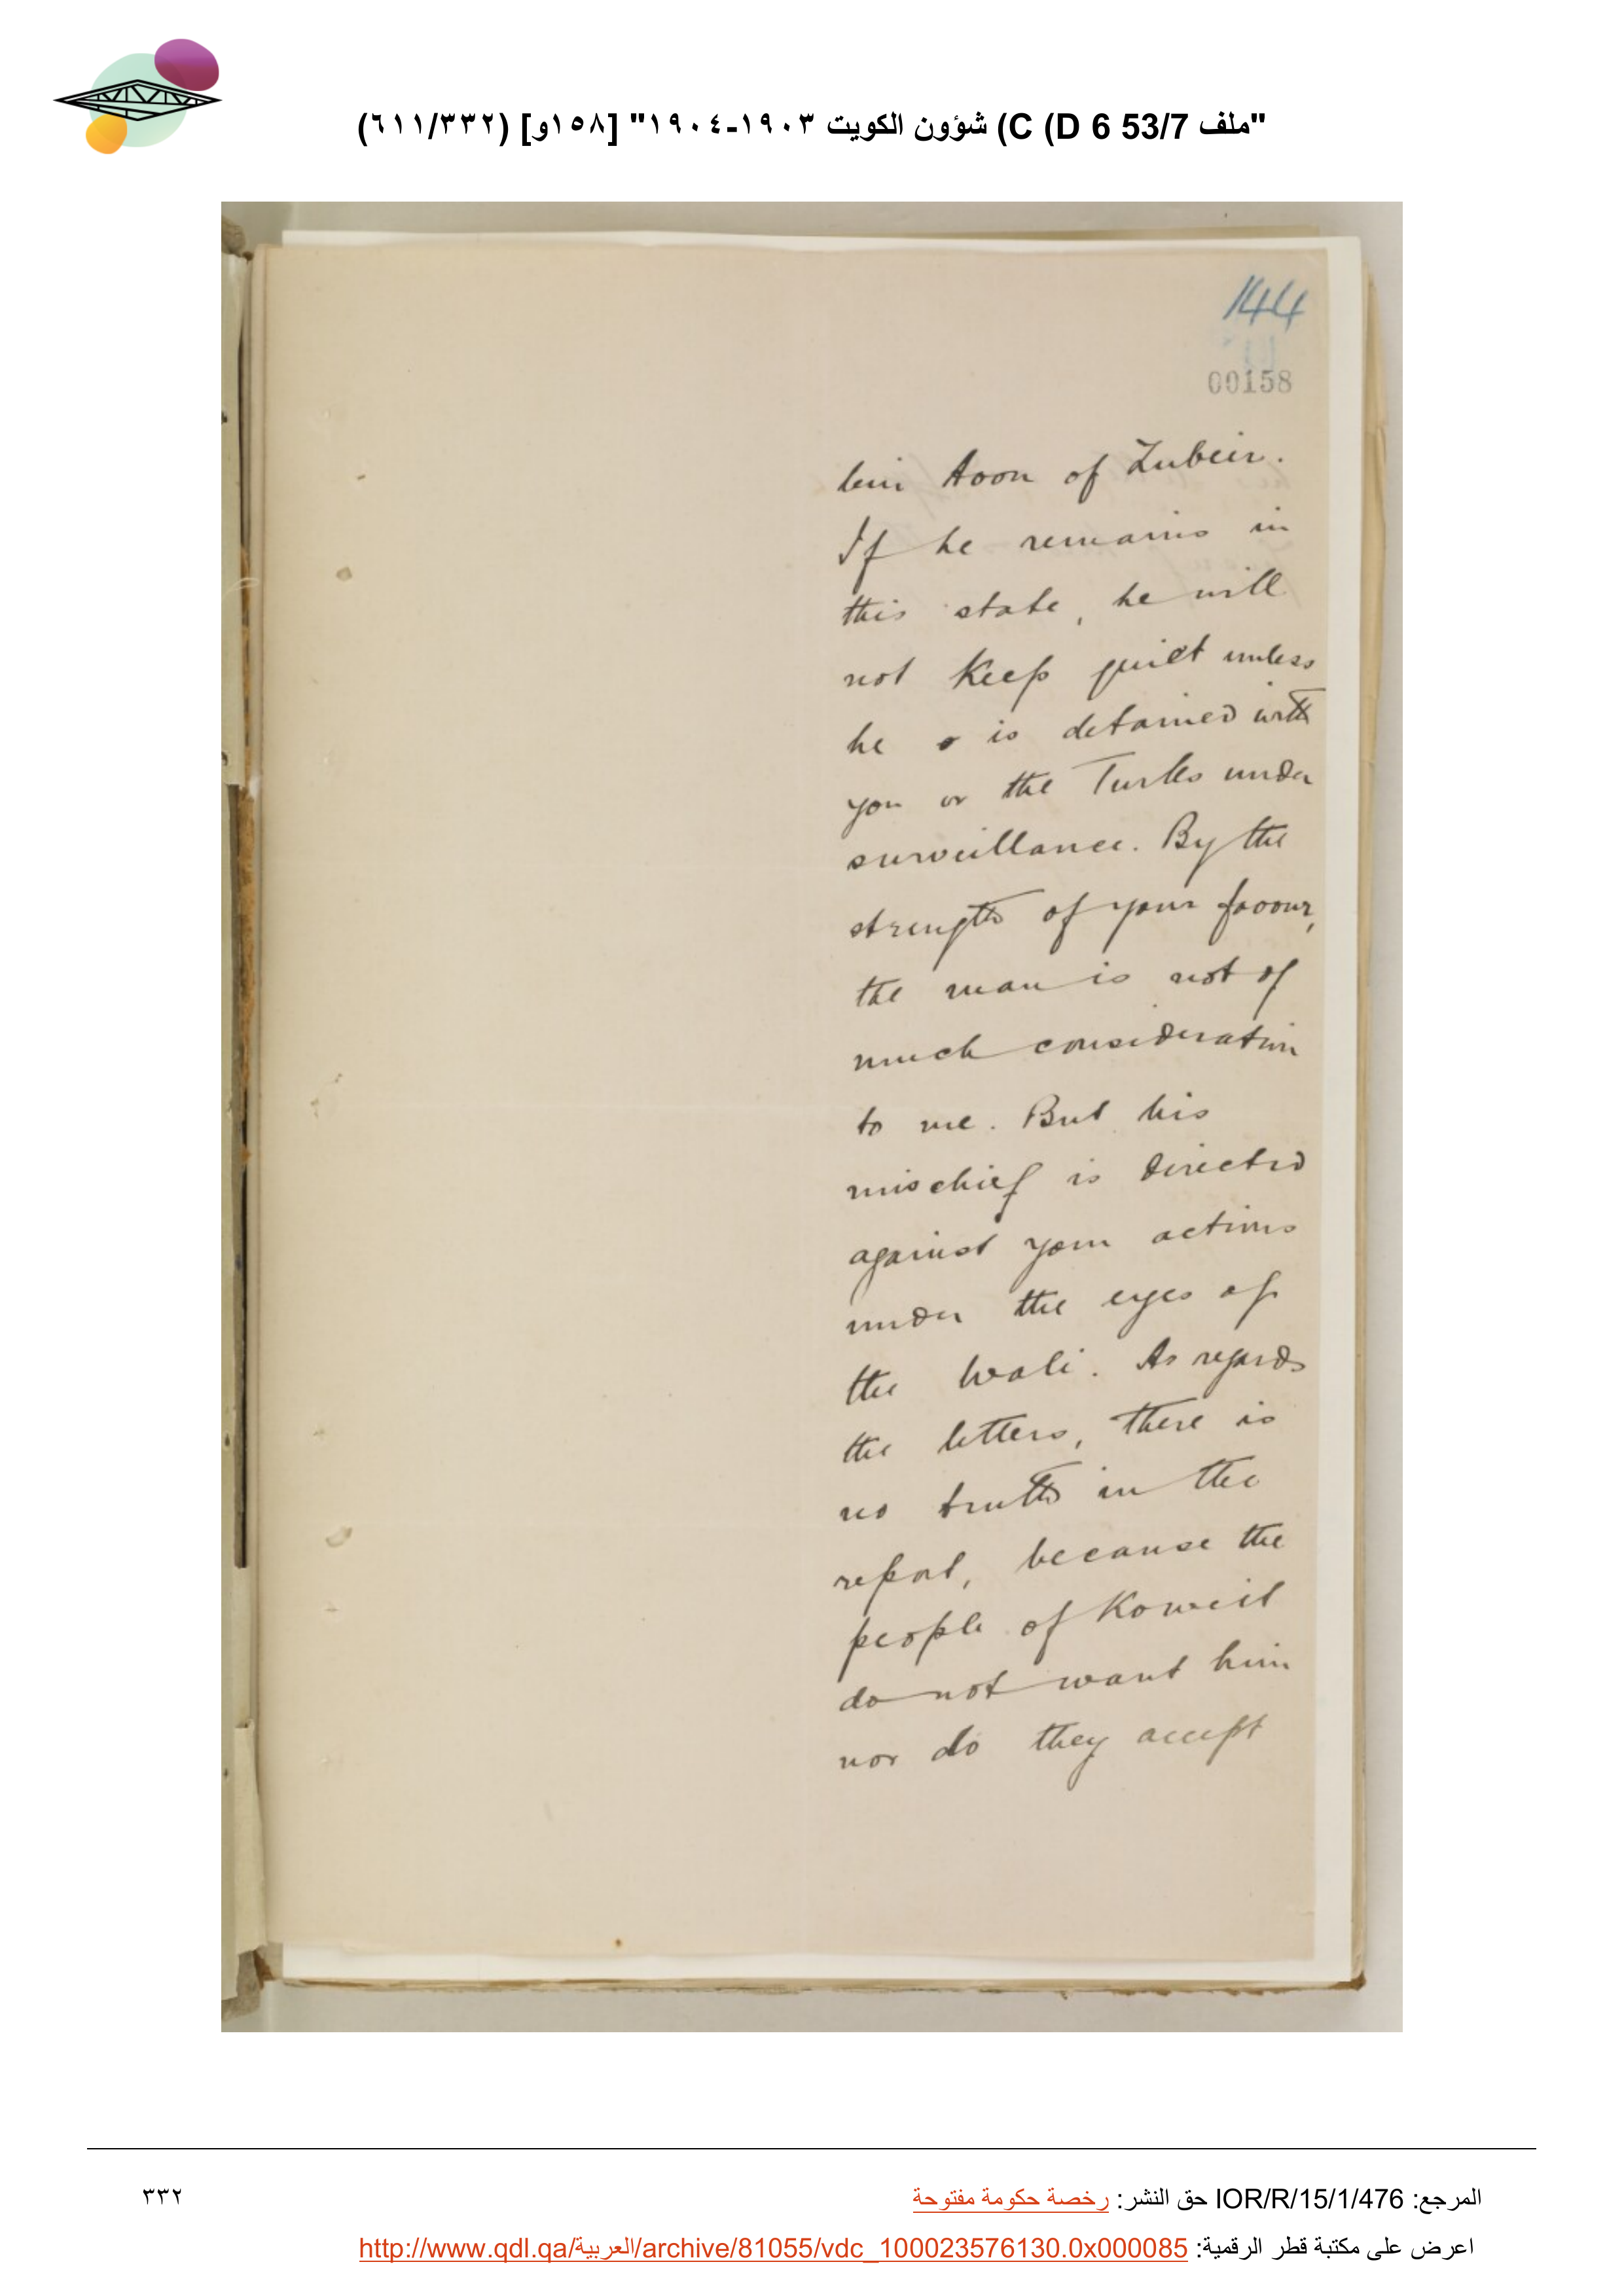 "ملف 53/7 D 6) C) شؤون الكويت ١٩٠٣-١٩٠٤" [١٥٨و] (٦١١/٣٣٢)
144
00158
bin Aoon of Zubeir.
If he remains in
this state, he will
not keep quiet unless
he is detained with
you or the Turks under
surveillance. By the
strength of your favour,
the man is not of
much consideration
to me. But his
mischief is directed
against your actions
under the eyes of
the Wali. As regards
the letters, there is
no truth in the
report, because the
people of Koweit
do not want him
nor do they accept
المرجع: IOR/R/15/1/476 حق النشر: رخصة حكومة مفتوحة
٣٣٢
اعرض على مكتبة قطر الرقمية: http://www.qdl.qa/العربية/archive/81055/vdc_100023576130.0x000085